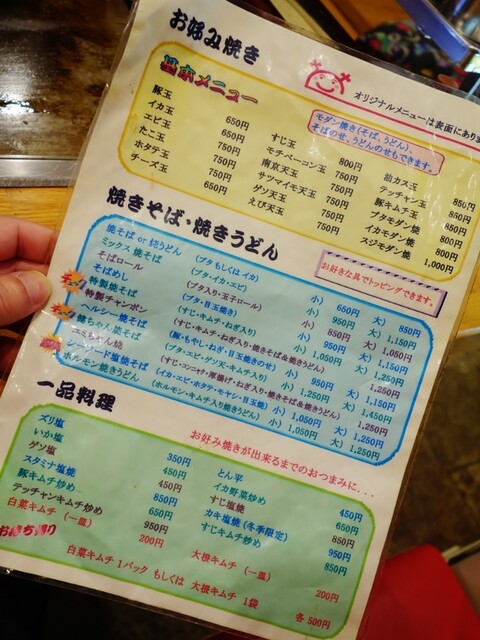 お好み焼き
オリジナルメニューは表面にありま
基本メニュー
モダン焼き(そば、うどん)、
そばのせ、うどんのせもできます。
豚玉 650円
イカ玉 650円
エビ玉 750円
たこ玉 750円
ホタテ玉 750円
チーズ玉 650円
すじ玉 800円
モチベーコン玉 750円
南京天玉 750円
サツマイモ天玉 750円
えび天玉 750円
油カス玉 850円
テッチャン玉 850円
豚キムチ玉 850円
ブタモダン焼 800円
イカモダン焼 800円
スジモダン焼 1,000円
焼きそば・焼きうどん
お好きな具でトッピングできます。
焼そば or 焼うどん (ブタ もしくは イカ) 小) 650円 大) 850円
ミックス焼そば (ブタ・イカ・エビ) 小) 950円 大) 1,150円
そばロール (ブタ入り・玉子ロール)
そばめし (ブタ・目玉焼き)
特製焼そば (すじ・キムチ・ねぎ入り)
特製チャンポン (すじ・キムチ・ねぎ入り・焼きそば&焼きうどん)
ヘルシー焼そば (豚・もやし・ねぎ・目玉焼のせ)
シーフード塩焼そば (イカ・エビ・ホタテ・モヤシ・目玉焼) 小) 1,050円 大) 1,250円
ホルモン焼きうどん (ホルモン・キムチ入り焼きうどん) 小) 1,050円 大) 1,250円
一品料理
お好み焼きが出来るまでのおつまみに...
ズリ塩 350円
いか塩 450円
ゲソ塩 450円
スタミナ塩焼 850円
豚キムチ炒め 650円
テッチャンキムチ炒め 950円
白菜キムチ (一皿) 200円
とん平 450円
イカ野菜炒め 650円
すじ塩焼 850円
カキ塩焼(冬季限定) 950円
すじキムチ炒め 850円
大根キムチ (一皿) 200円
お持ち帰り
白菜キムチ 1パック もしくは 大根キムチ 1袋 各 500円